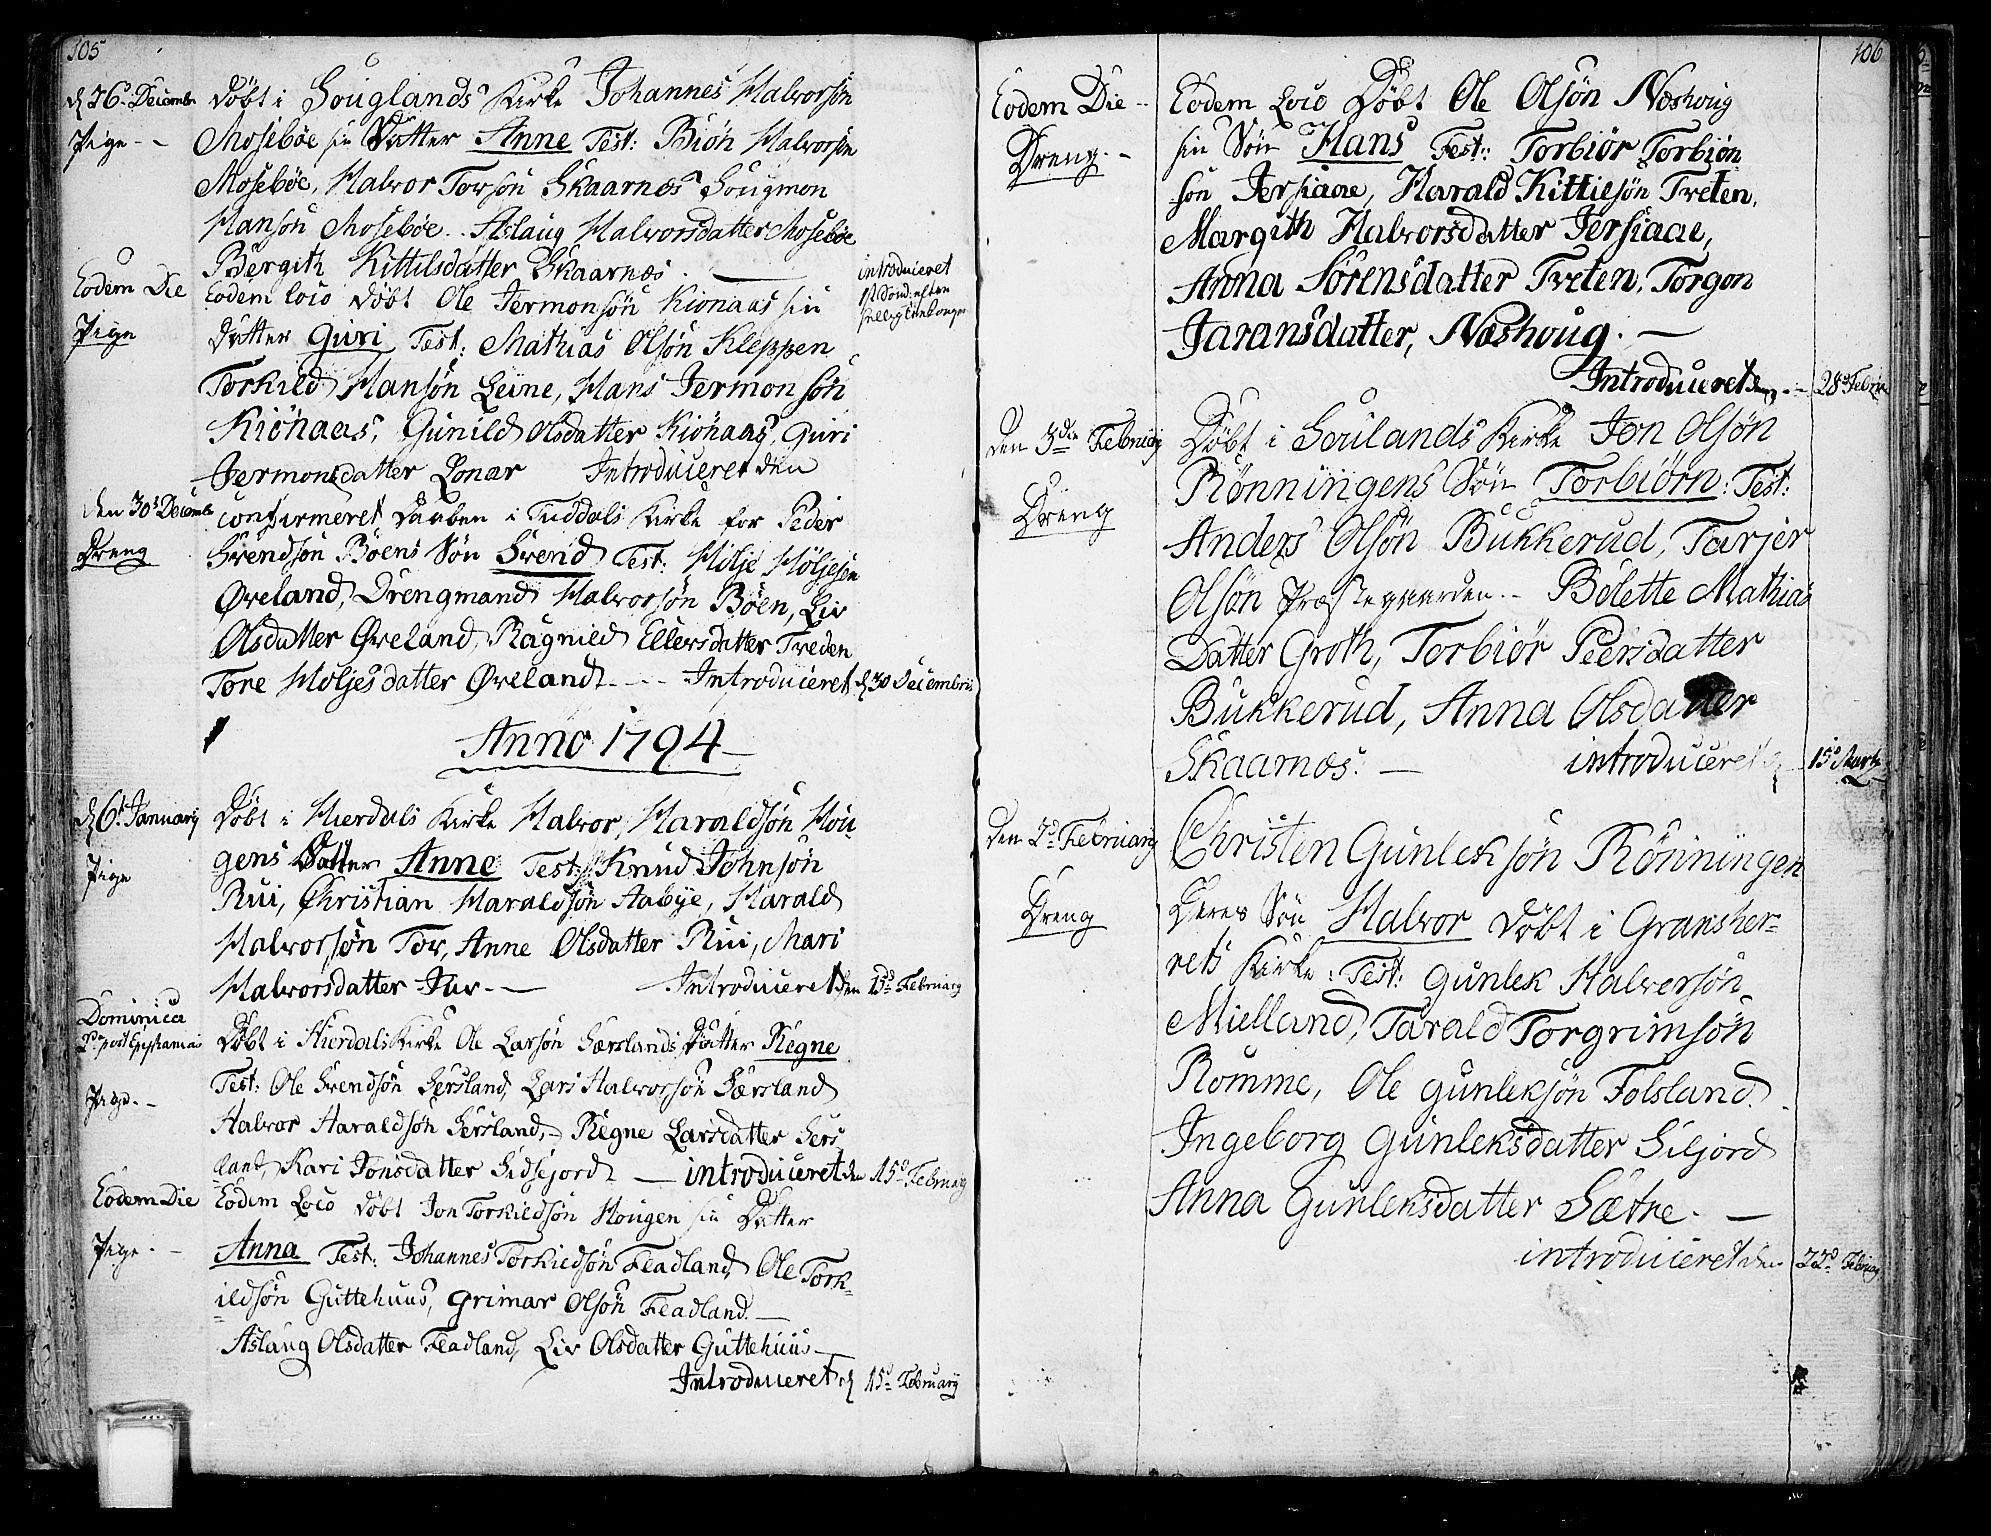 105
d 26d Decembr
Pige - -
døbt i Souglands Kirke Johannes Halvorsøn
Mosebøe sin Datter Anne Test: Biøn Halvorsøn
Mosebøe, Halvor Torsøn Skaarnæs Sougmon
Hansøn Mosebøe.. Aslaug Halvorsdatter Mosebøe
Bergith Kittilsdatter Skaarnæs. —
Eodem Die
Pige
Eodem loco døbt Ole Jermonsøn Kionaas sin
introduceret
Datter Guri Test: Mathias Olsøn Kleppen
Torkild Hansøn Leine, Hans Jermonsøn
Kiönaas, Gunild Olsdatter Kiönaas, Guri
Jermonsdatter Lonar Introduceret den
den 30d Decembr
Dreng
confirmeret Daaben i Tuddals Kirke for Peder
Svendsøn Bøens Søn Svend Test: Hølje Høljesøn
Øreland, Drengmand Halvorsøn Bøen, Liv
Olsdatter Øreland, Ragnild Ellersdatter Treden
Tore Høljesdatter Øreland - - - Introduceret d 30 Decembris
Anno 1794 —
d 6t January
Pige
Døbt i Hierdals Kirke Halvor, Haraldsøn Hou
gens Datter Anne Test: Knud Johnsøn
Rui, Christian Haraldsøn Aabye, Harald
Halvorsøn Tov, Anne Olsdatter Rui, Mari
Halvorsdatter Juv. — Introduceret den 15d February
Dominica
2da post Epiphanias
Pige. -
Døbt i Hierdals Kirke Ole Larsøn Særslands Datter Régne
Test: Ole Svendsøn Sersland, Lars Halvorsøn Særsland
Halvor Haraldsøn Sersland, - Régne Larsdatter Sers
land, Kari Jonsdatter Sidsejord — introduceret den 15d February
Eodem Die
Pige. -
Eodem Loco døbt Jon Torkildsøn Hougen sin Datter
Anna Test: Johannes Torkiedsøn Fladland, Ole Tork-
ildsøn Guttehuus, Grimar Olsøn Fladland. —
Aslaug Olsdatter Fladland, Liv Olsdatter Guttehuus —
Introduceret d 15d February
106
Eodem Die -
Dreng. -
Eodem Loco Døbt Ole Olsøn Næshoug
sin Søn Hans Test: Torbiør Torbiøn
søn Jersiaae, Harald Kittilsøn Treten,
Margith Halvorsdatter Jersiaae,
Anna Sørensdatter Treten, Torgon
Jaransdatter, Næshoug. —
Introduceret den. - 28d Febru
Den 3die February
Dreng
Døbt i Soulands Kirke Jon Olsøn
Rönningens Søn Torbiörn: Test:
Anders Olsøn Bukkerud, Tarjer
Olsøn Præstegaarden. - Bolette Mathias
Datter Groth, Torbiør Peersdatter
Bukkerud, Anna Olsdatter
Skaarnæs. — introduceret d. 15d Marti
Den 2d February
Dreng
Christen Gunleksøn Rönningen
Deres Søn Halvor døbt i Gransher-
rets Kirke: Test: Gunlek Halvorsøn
Mielland, Tarald Torgrimsøn
Romme, Ole Gunleksøn Folsland.
Ingeborg Gunleksdatter Siljord
Anna Gunleksdatter Sætre. —
introduceret den 22d February